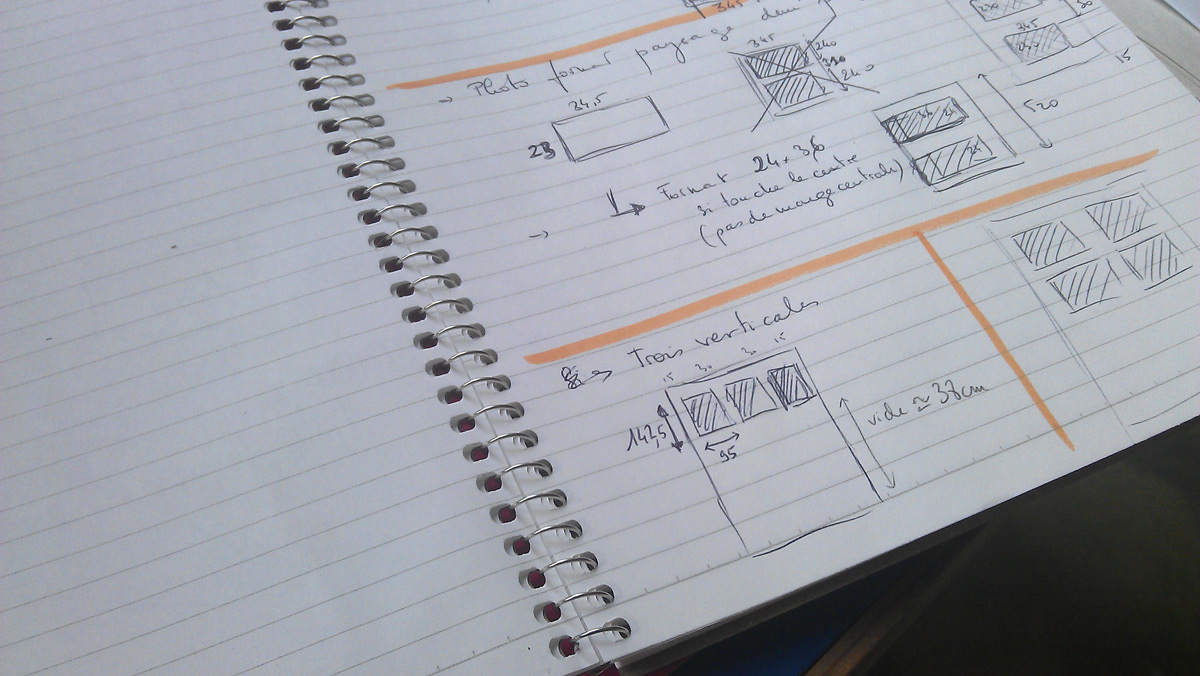 345
→ Photo format paysage
34,5
23
345
240
240
345
15
520
→ Format 24 x 36
si touche le centre
(pas de marge centrale)
→
→ Trois verticales
15
30
30
15
142,5
95
vide ≃ 37cm